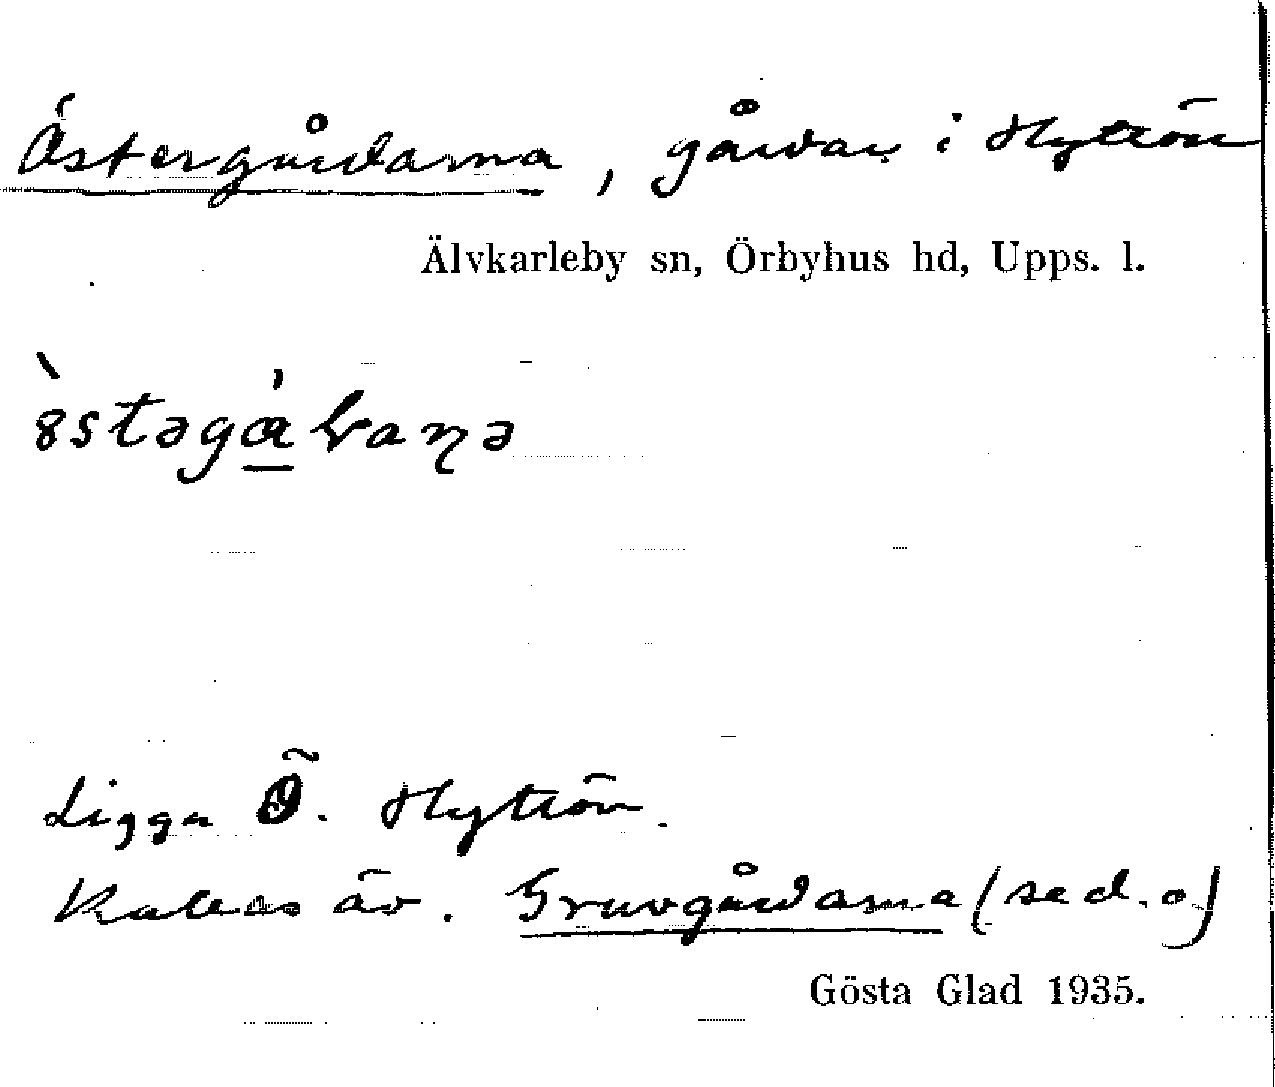 Östergårdarna, gårdar i Hyttön
Älvkarleby sn, Örbyhus hd, Upps. l.
Ligga Ö. Hyttön.
Kallas äv. Gruvgårdarna (se d. o)
Gösta Glad 1935.